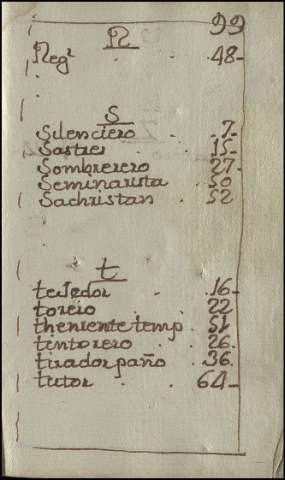 99
R
Regr 48
S
Silenciero 7
Sastre 15
Sombrerero 27
Seminarista 50
Sachristan 52
t
texedor 16
torero 22
theniente temp 51
tintorero 26
tirador paño 36
tutor 64